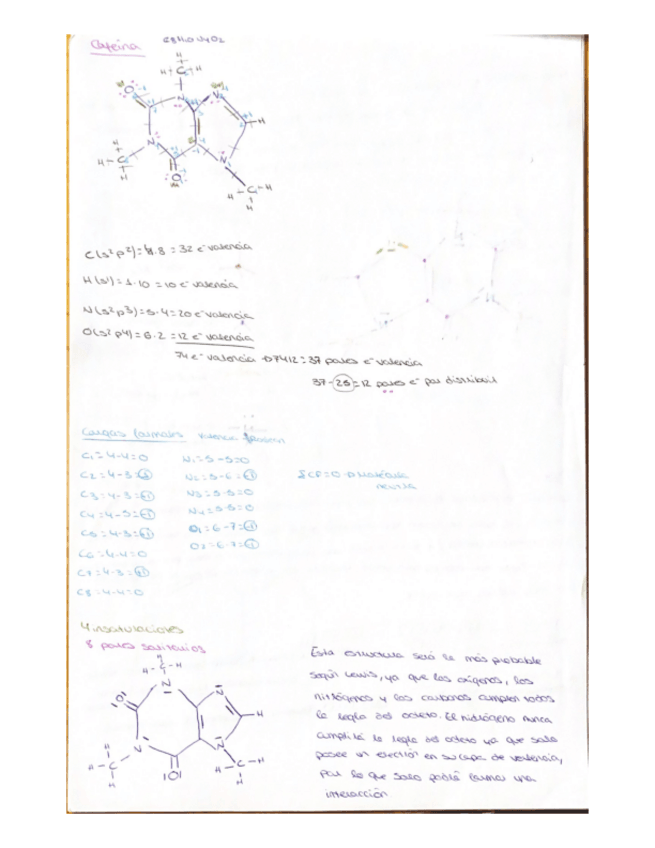 Cafeína C8H10N4O2
C(s²p²)=4·8=32 e⁻ valencia
H(s¹)=1·10=10 e⁻ valencia
N(s²p³)=5·4=20 e⁻ valencia
O(s²p⁴)=6·2=12 e⁻ valencia
74 e⁻ valencia → 74/2=37 pares e⁻ valencia
37-25=12 pares e⁻ por distribuir
Cargas formales valencia
C1=4-4=0 N1=5-5=0
C2=4-3=+1 N2=5-6=-1
C3=4-3=+1 N3=5-5=0
C4=4-5=-1 N4=5-5=0
C5=4-3=+1 O1=6-7=-1
C6=4-4=0 O2=6-7=-1
C7=4-3=+1
C8=4-4=0
ΣCF=0→molécula
neutra
4 insaturaciones
8 pares solitarios
Esta estructura será la más probable
según Lewis, ya que los oxígenos, los
nitrógenos y los carbonos cumplen todos
la regla del octeto. El hidrógeno nunca
cumplirá la regla del octeto ya que solo
posee un electrón en su capa de valencia,
por lo que solo podrá formar una
interacción